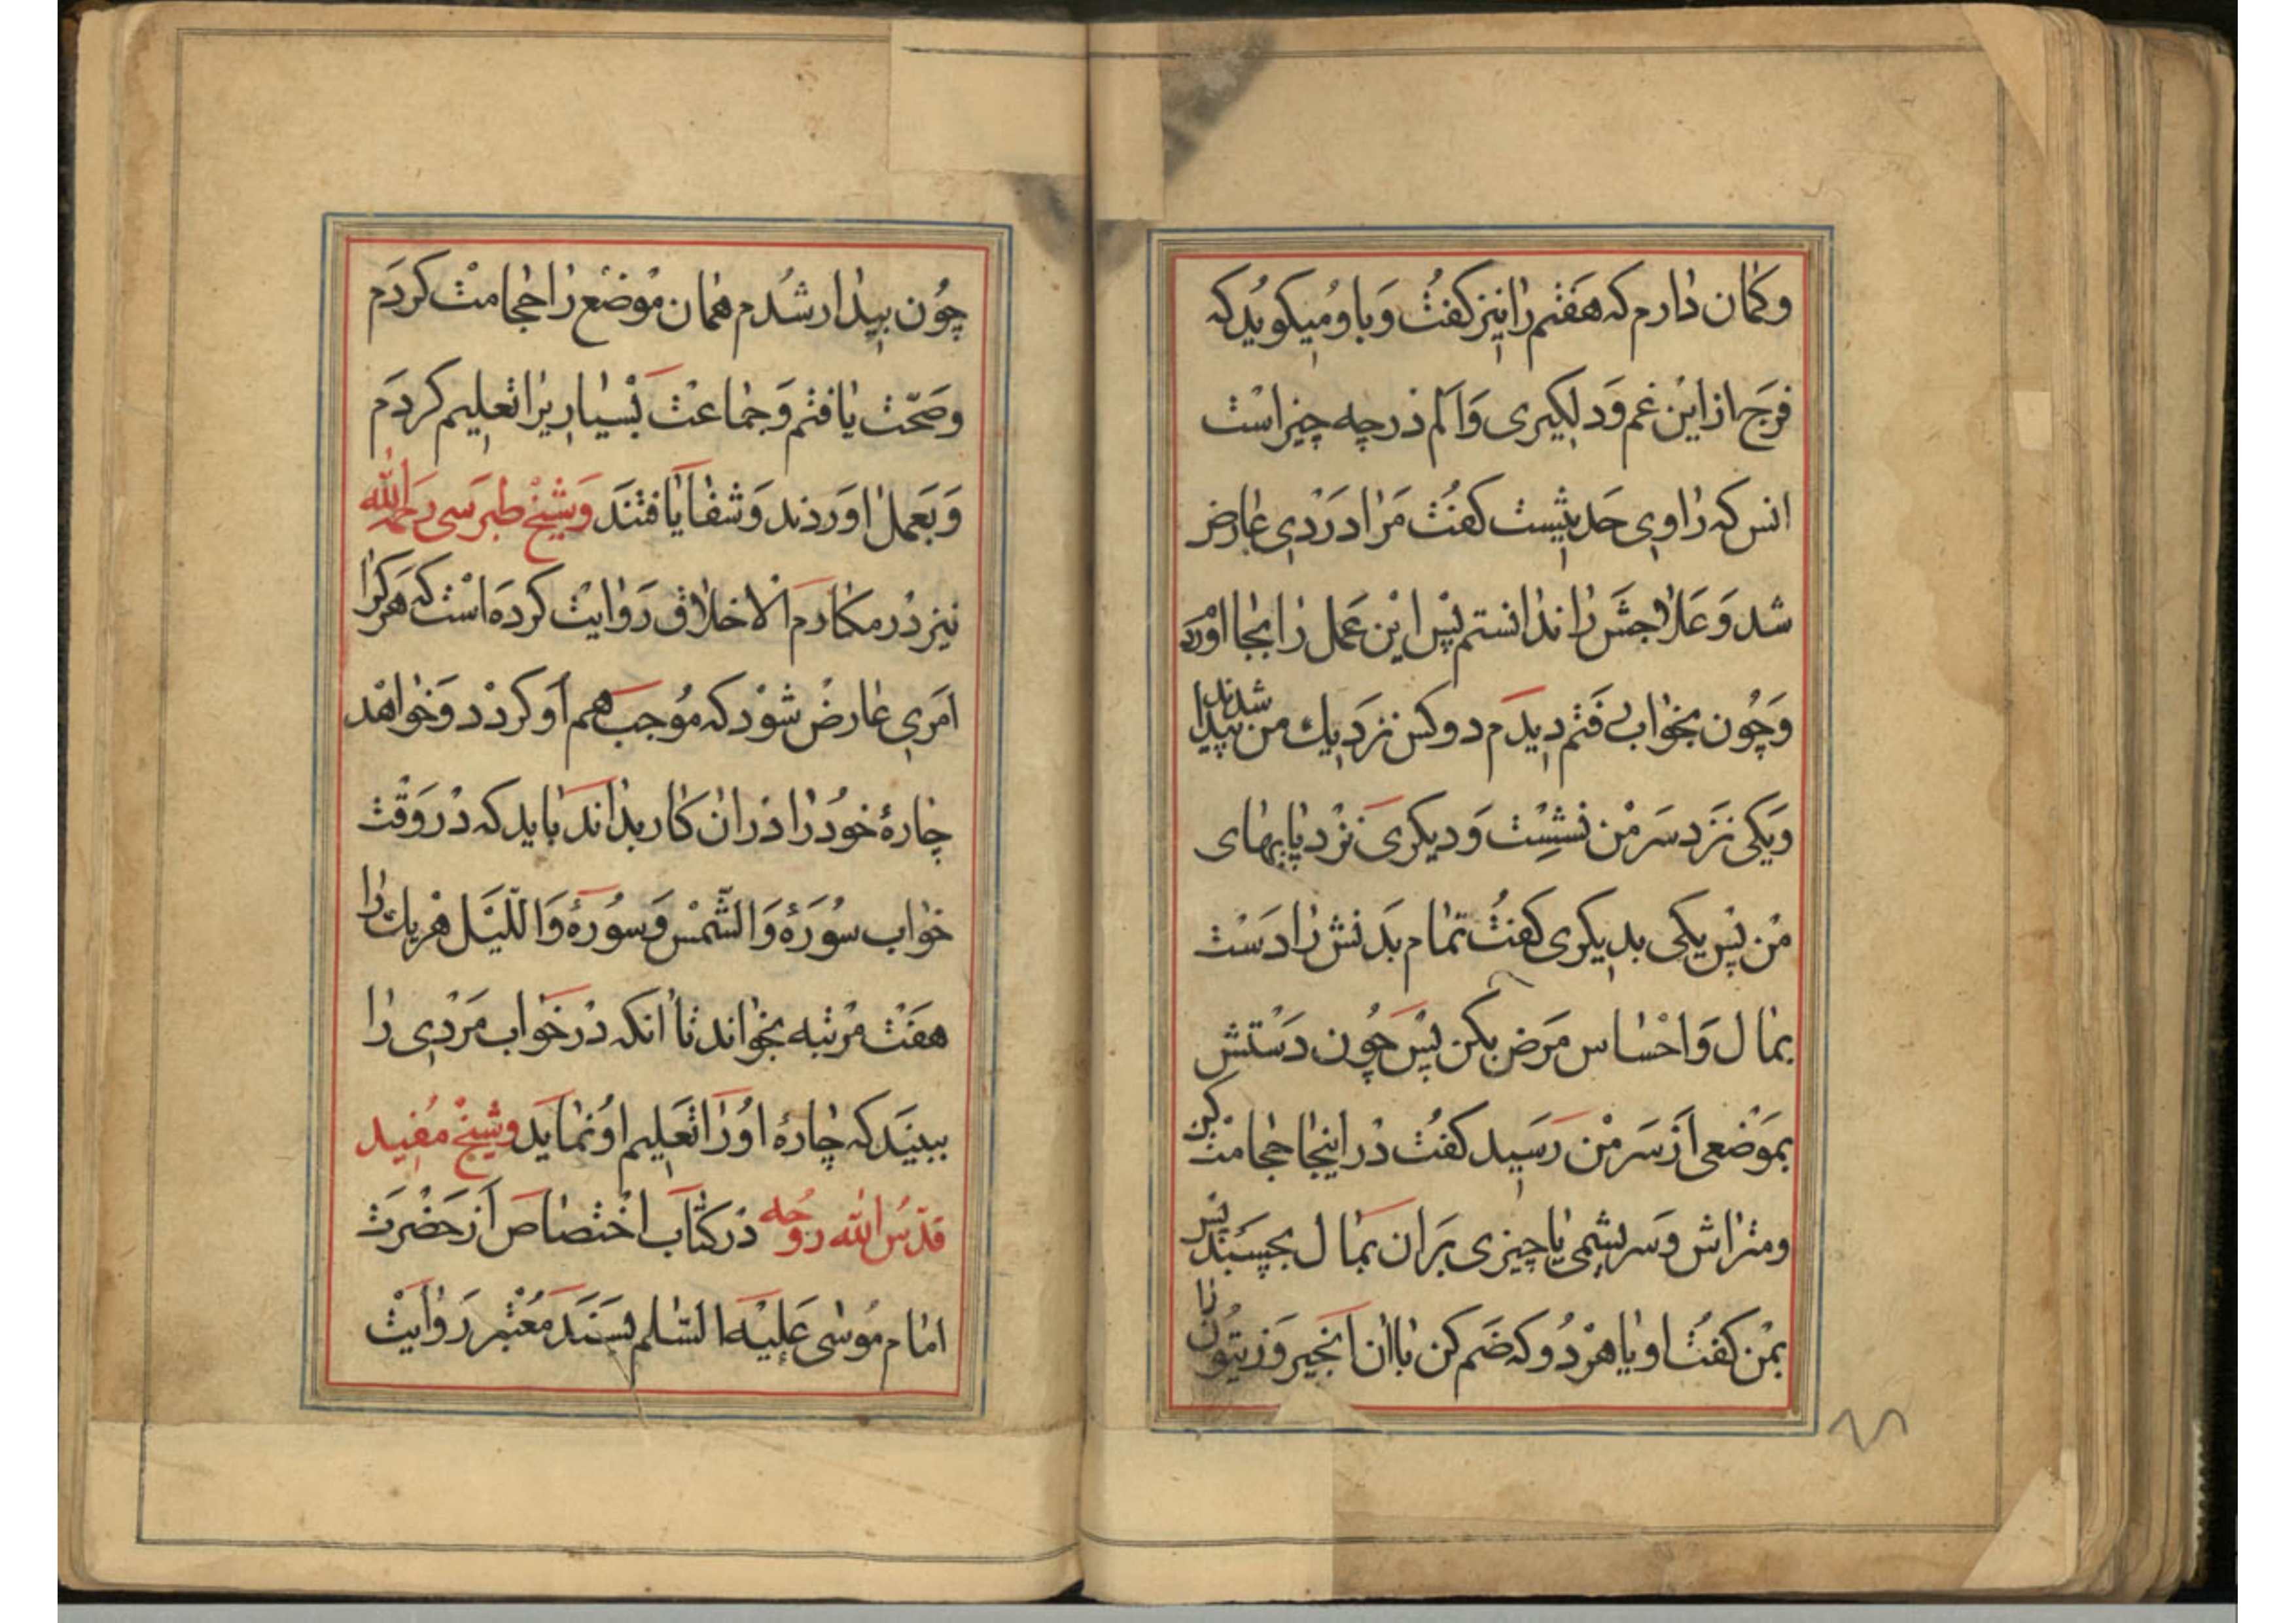 وکمان دارم که هَفتم را نیز کفتُ وَباوُ میکویُد که
فرَج از اینْ غم وَدلکیری وَاَلم دَرچه چیزاسْت
انس که راویِ حَدیثیست کفتُ مَرا دَرْدیِ عارض
شد وَعَلاجشَ را ندانستم پسْ اینْ عَمل را بجا اوردم
وَچُون بخوْاب رفتم دِیدَم دوکس نزدَیک من پیدا شدند
وَیکی نَزد سَر مْن نشسْت وَدیکریَ نزْد پایهای
مْن پسْ یکی بدیکری کفتُ تمام بَدنش را دَسْت
بمال وَاحْساس مَرض بکن پسْ چُون دَسْتش
بمَوْضعی اَزسَر مْن رَسید کفتُ دْر اینجا حجامتْ کن
ومتراش وَسر بشمی یا چیزی بَران بمال بچسَبْند پس
بمْن کفتُ او یا هرْدُو که ضَم کن باان اَنجیر وَزیتوُن را
چُون بیدار شُدم همان موْضعْ را حجامتْ کردَم
وصَحّت یافتم وَجماعتْ بسْیاریرا تعلیم کردَم
وَبعَمل اوَردند وَشفا یافتنَد وَشیْخ طبرَسی رَحمه الله
نیز دْر مکارم اَلاخلاق رَوایتْ کردَه اسْت که هَرکرا
امَریِ عارضْ شوْد که مُوجب هم اَو کردْد وَخواهْد
چارهٔ خوُد را دَران کار بداند باید که دْر وَقْت
خواب سوُرَهٔ وَالشّمسْ وَسوُرهٔ وَاللّیْل هْریک را
هفتْ مرْتبه بخوْاند تا اَنکه دْرخوَاب مَردْیِ را
ببینَد که چارهٔ اوُ رَا تعَلیم اوُ نمایَد وشیْخ مُفید
قدّسُ الله رُوحه دْرکتاب اخْتصاص اَزحَضْرَت
امام مُوسٰی عَلیْه السّلم بسَنَد مَعْتبر رَوٰایتْ